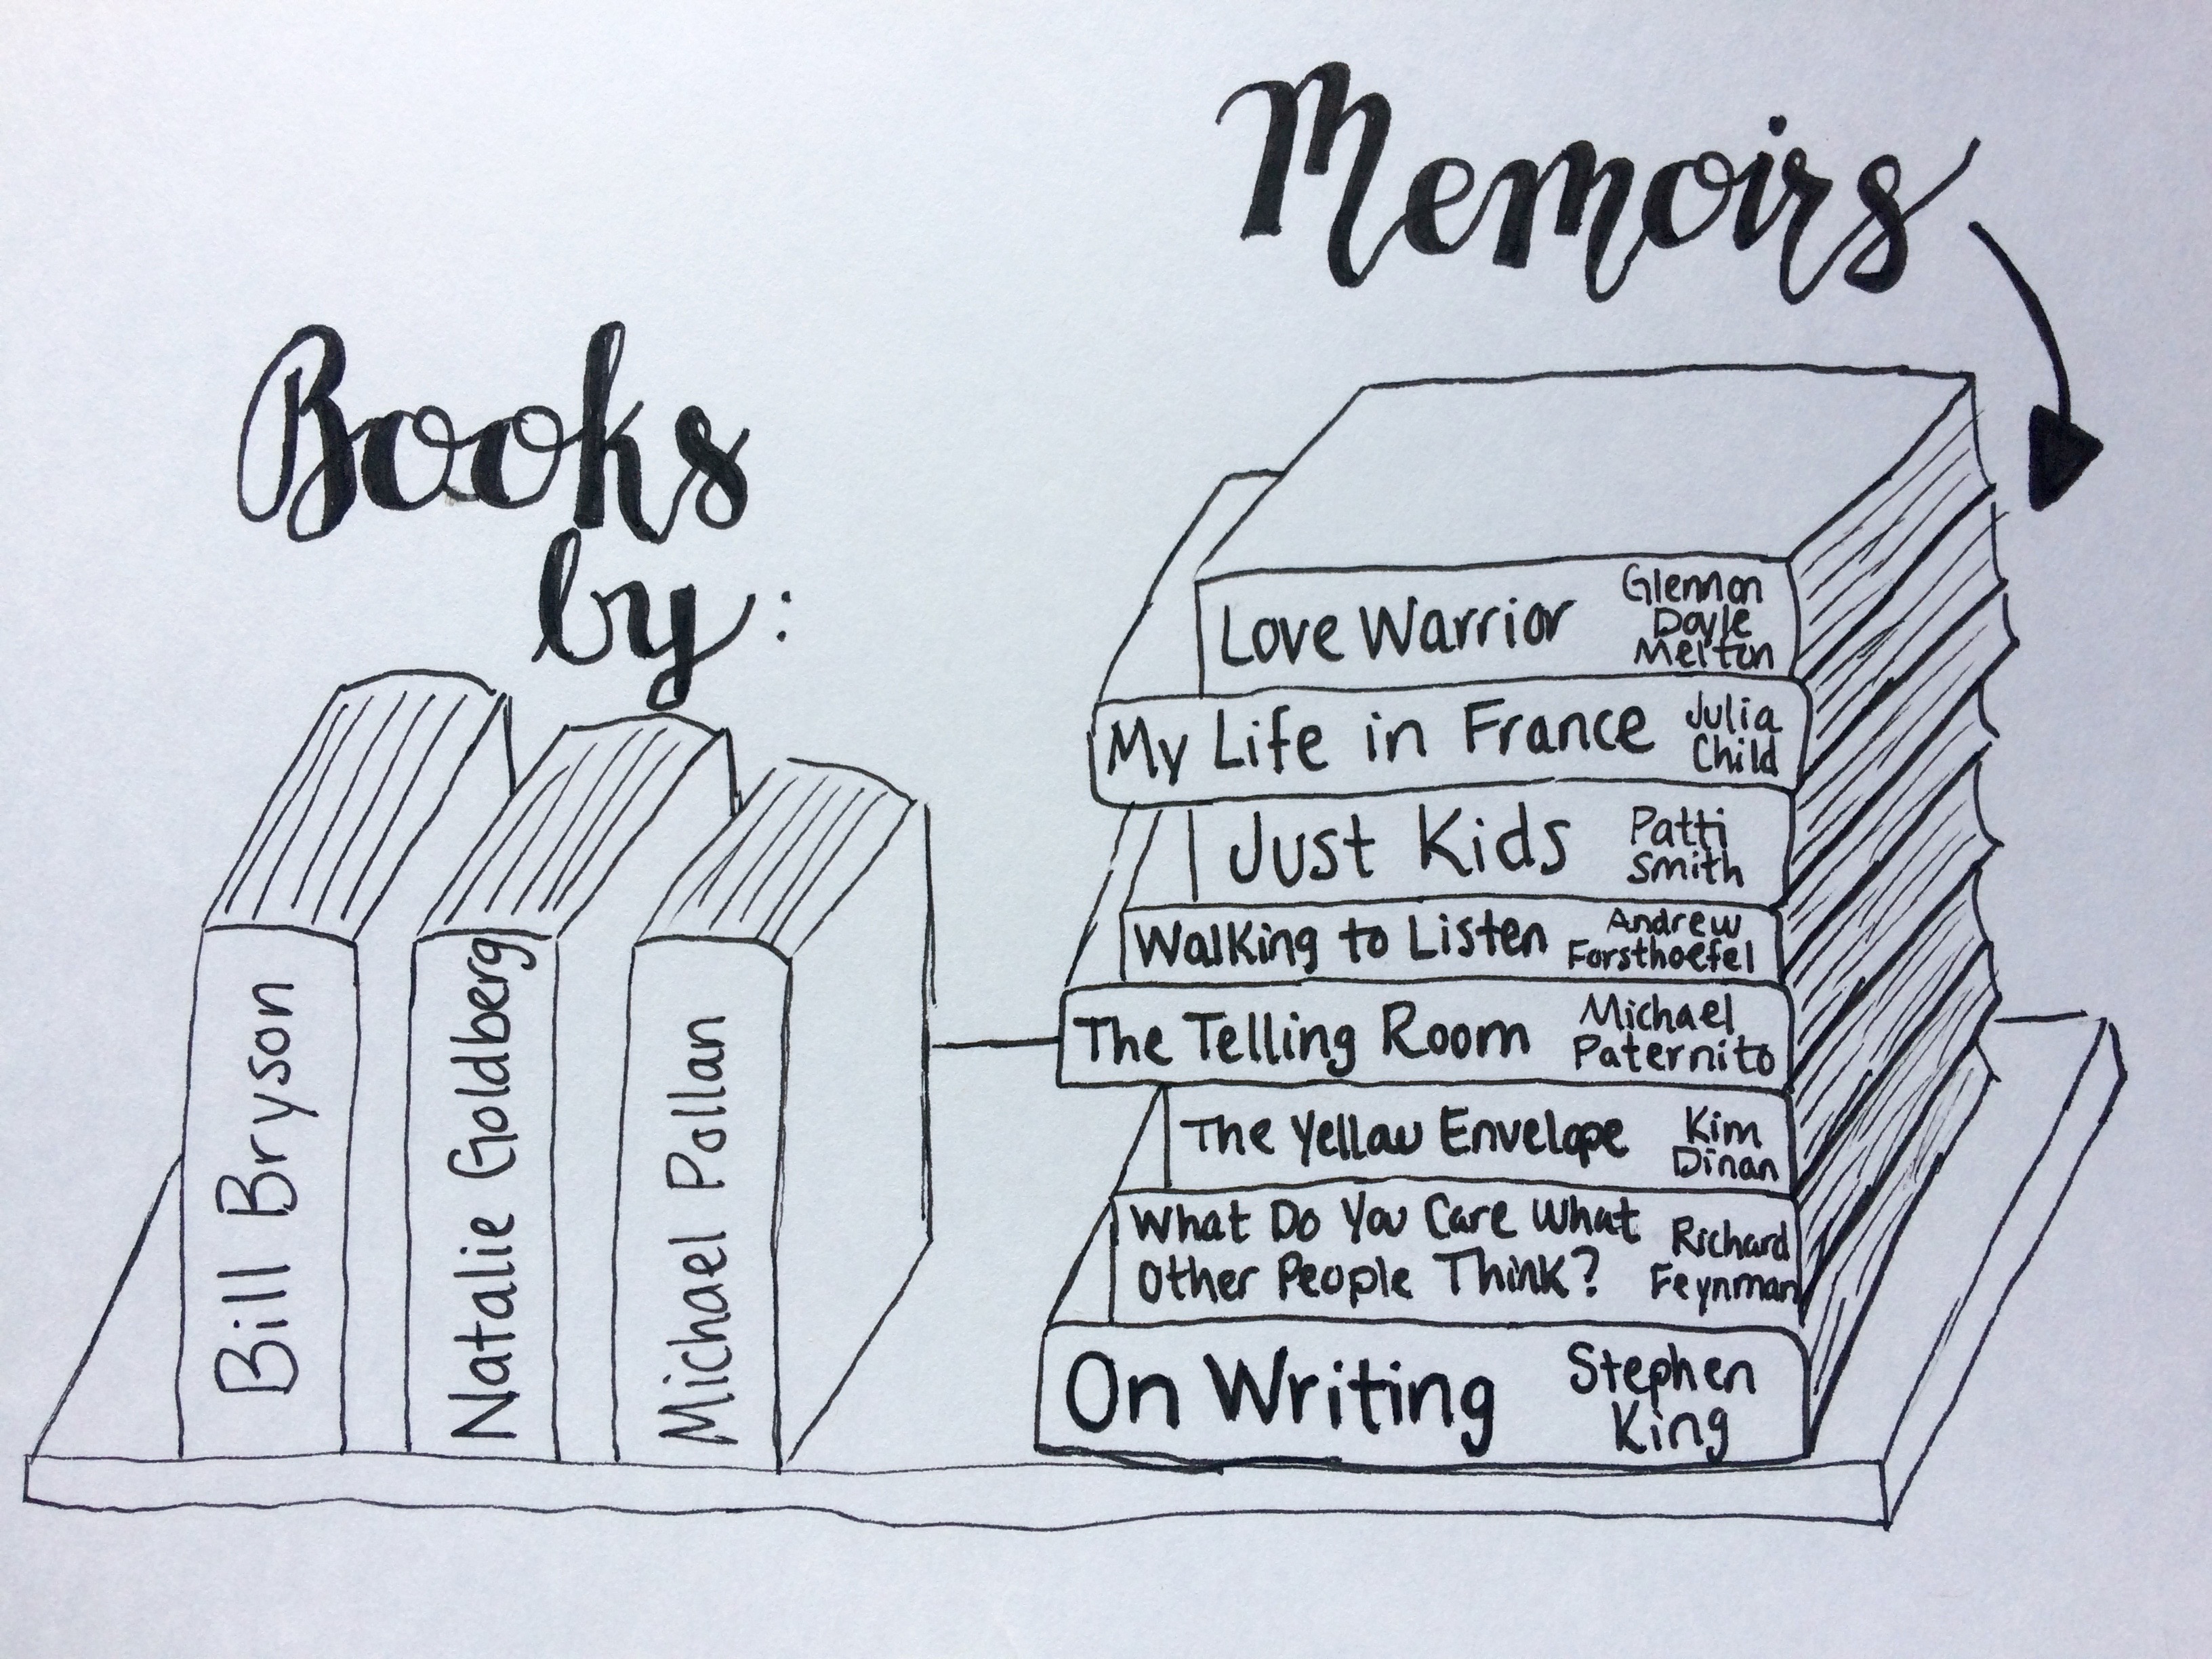 Memoirs
Books
by:
Bill Bryson
Natalie Goldberg
Michael Pollan
Love Warrior Glennon
Doyle
Melton
My Life in France Julia
Child
Just Kids Patti
Smith
Walking to Listen Andrew
Forsthoefel
The Telling Room Michael
Paternito
The Yellow Envelope Kim
Dinan
What Do You Care What
Other People Think? Richard
Feynman
On Writing Stephen
King